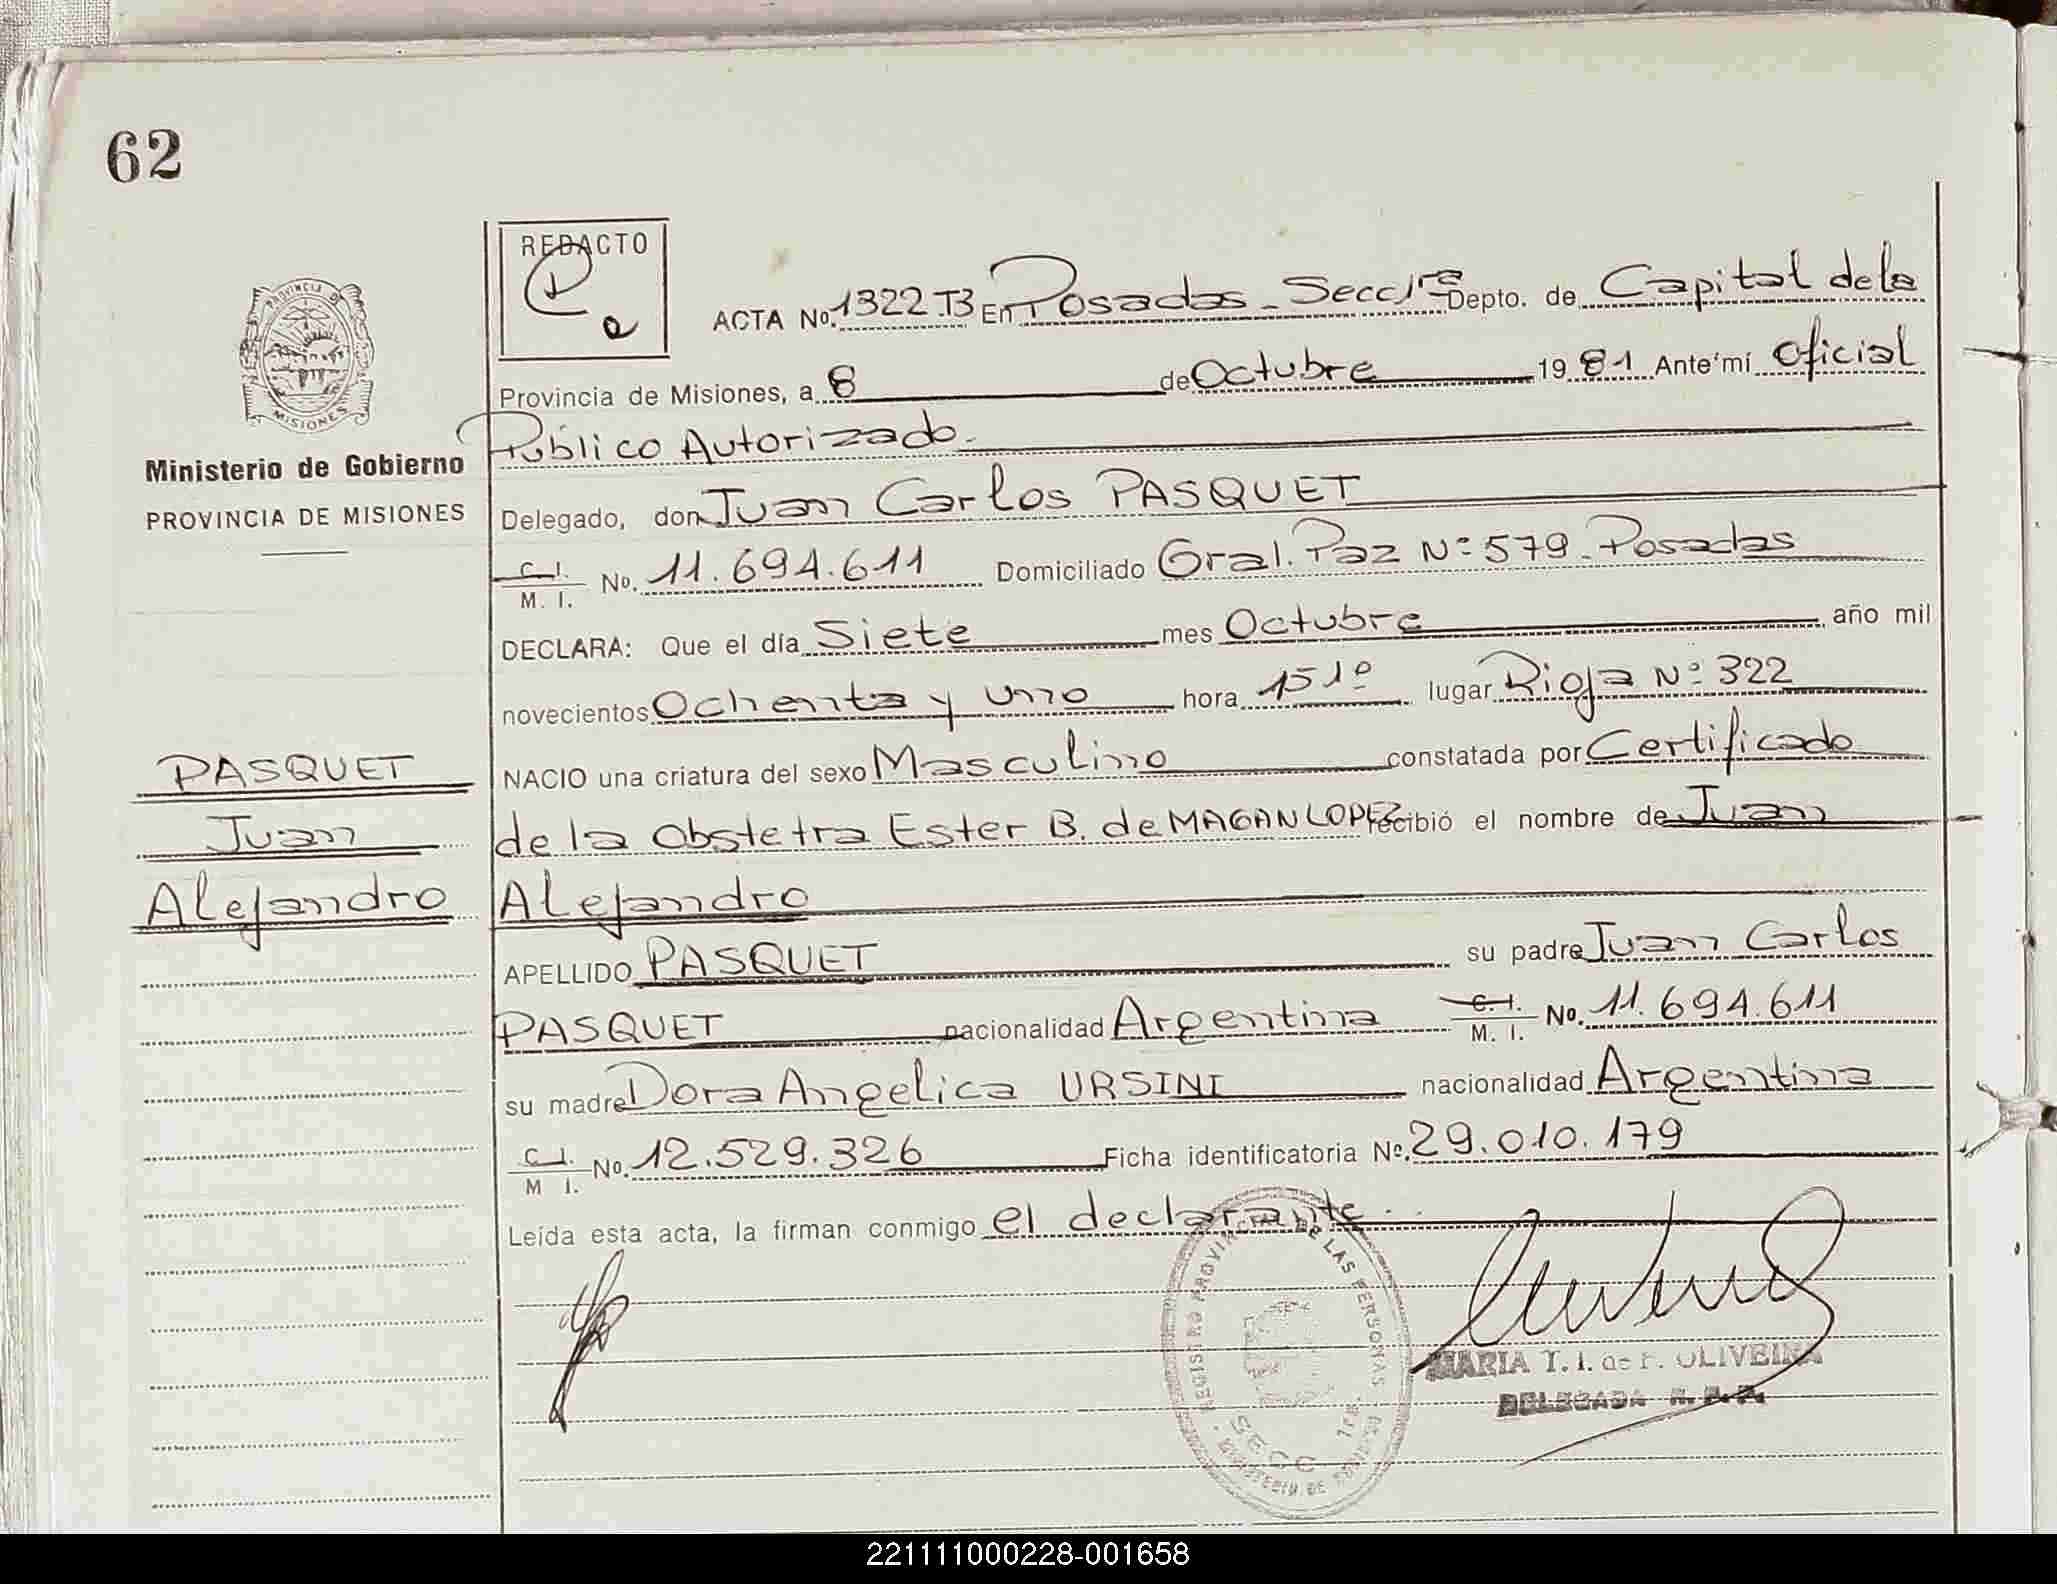 62
REDACTO
ACTA No. 1322 T3 En Posadas - Secc 1ra Depto. de Capital de la
Provincia de Misiones, a 8 de Octubre 1981 Ante mí Oficial
Público Autorizado.
PROVINCIA DE
MISIONES
Ministerio de Gobierno
PROVINCIA DE MISIONES
Delegado, don Juan Carlos PASQUET
C. I.
M. I. No. 11.694.611 Domiciliado Gral. Paz Nº 579 - Posadas
DECLARA: Que el día Siete mes Octubre año mil
novecientos Ochenta y uno hora 15 10 lugar Rioja Nº 322
NACIO una criatura del sexo Masculino constatada por Certificado
de la Obstetra Ester B. de MAGAN LOPEZ recibió el nombre de Juan
Alejandro
PASQUET
Juan
Alejandro
APELLIDO PASQUET su padre Juan Carlos
PASQUET nacionalidad Argentina C. I. M. I. No. 11.694.611
su madre Dora Angelica URSINI nacionalidad Argentina
C. I.
M I. No. 12.529.326 Ficha identificatoria No. 29.010.179
Leída esta acta, la firman conmigo el declarante.
REGISTRO PROVINCIAL DE LAS PERSONAS
SECC 1ra.
MARIA T. I. de F. OLIVEIRA
DELEGADA R. P. P.
221111000228-001658